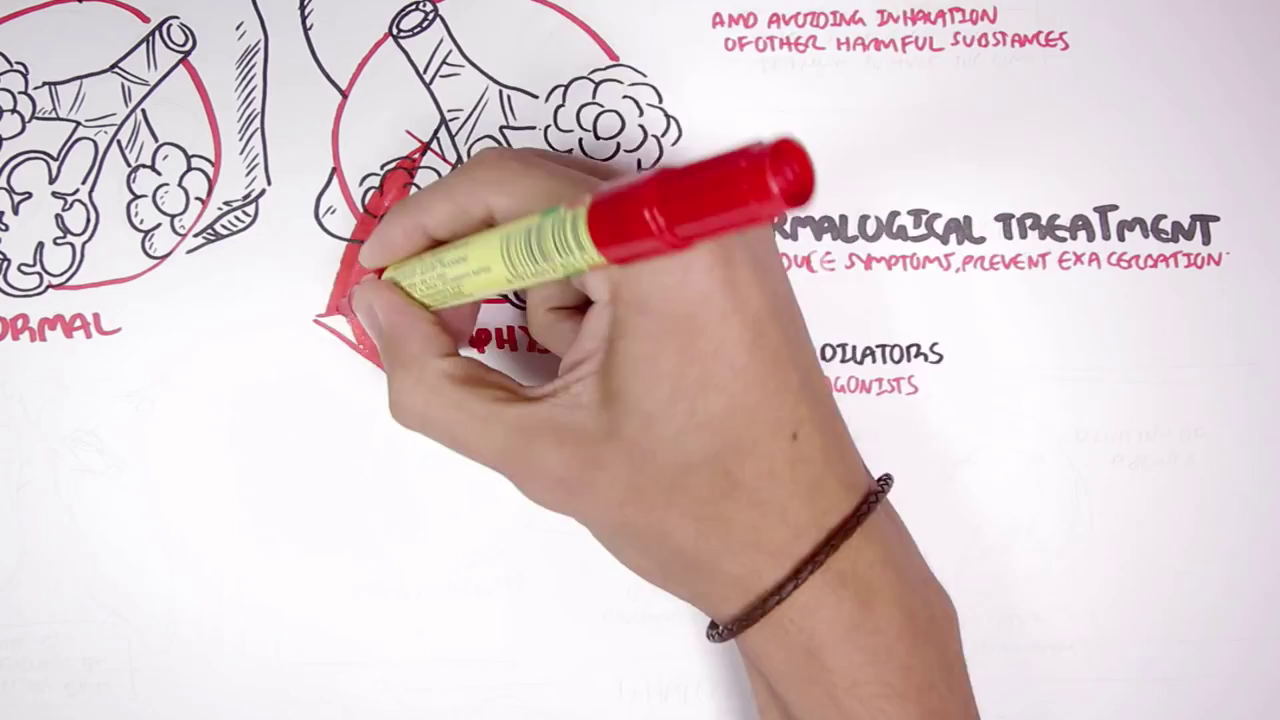 AND AVOIDING INHALATION
OF OTHER HARMFUL SUBSTANCES
RMALOGICAL TREATMENT
DUCE SYMPTOMS, PREVENT EXACERBATION
ORMAL
PHY
DILATORS
AGONISTS